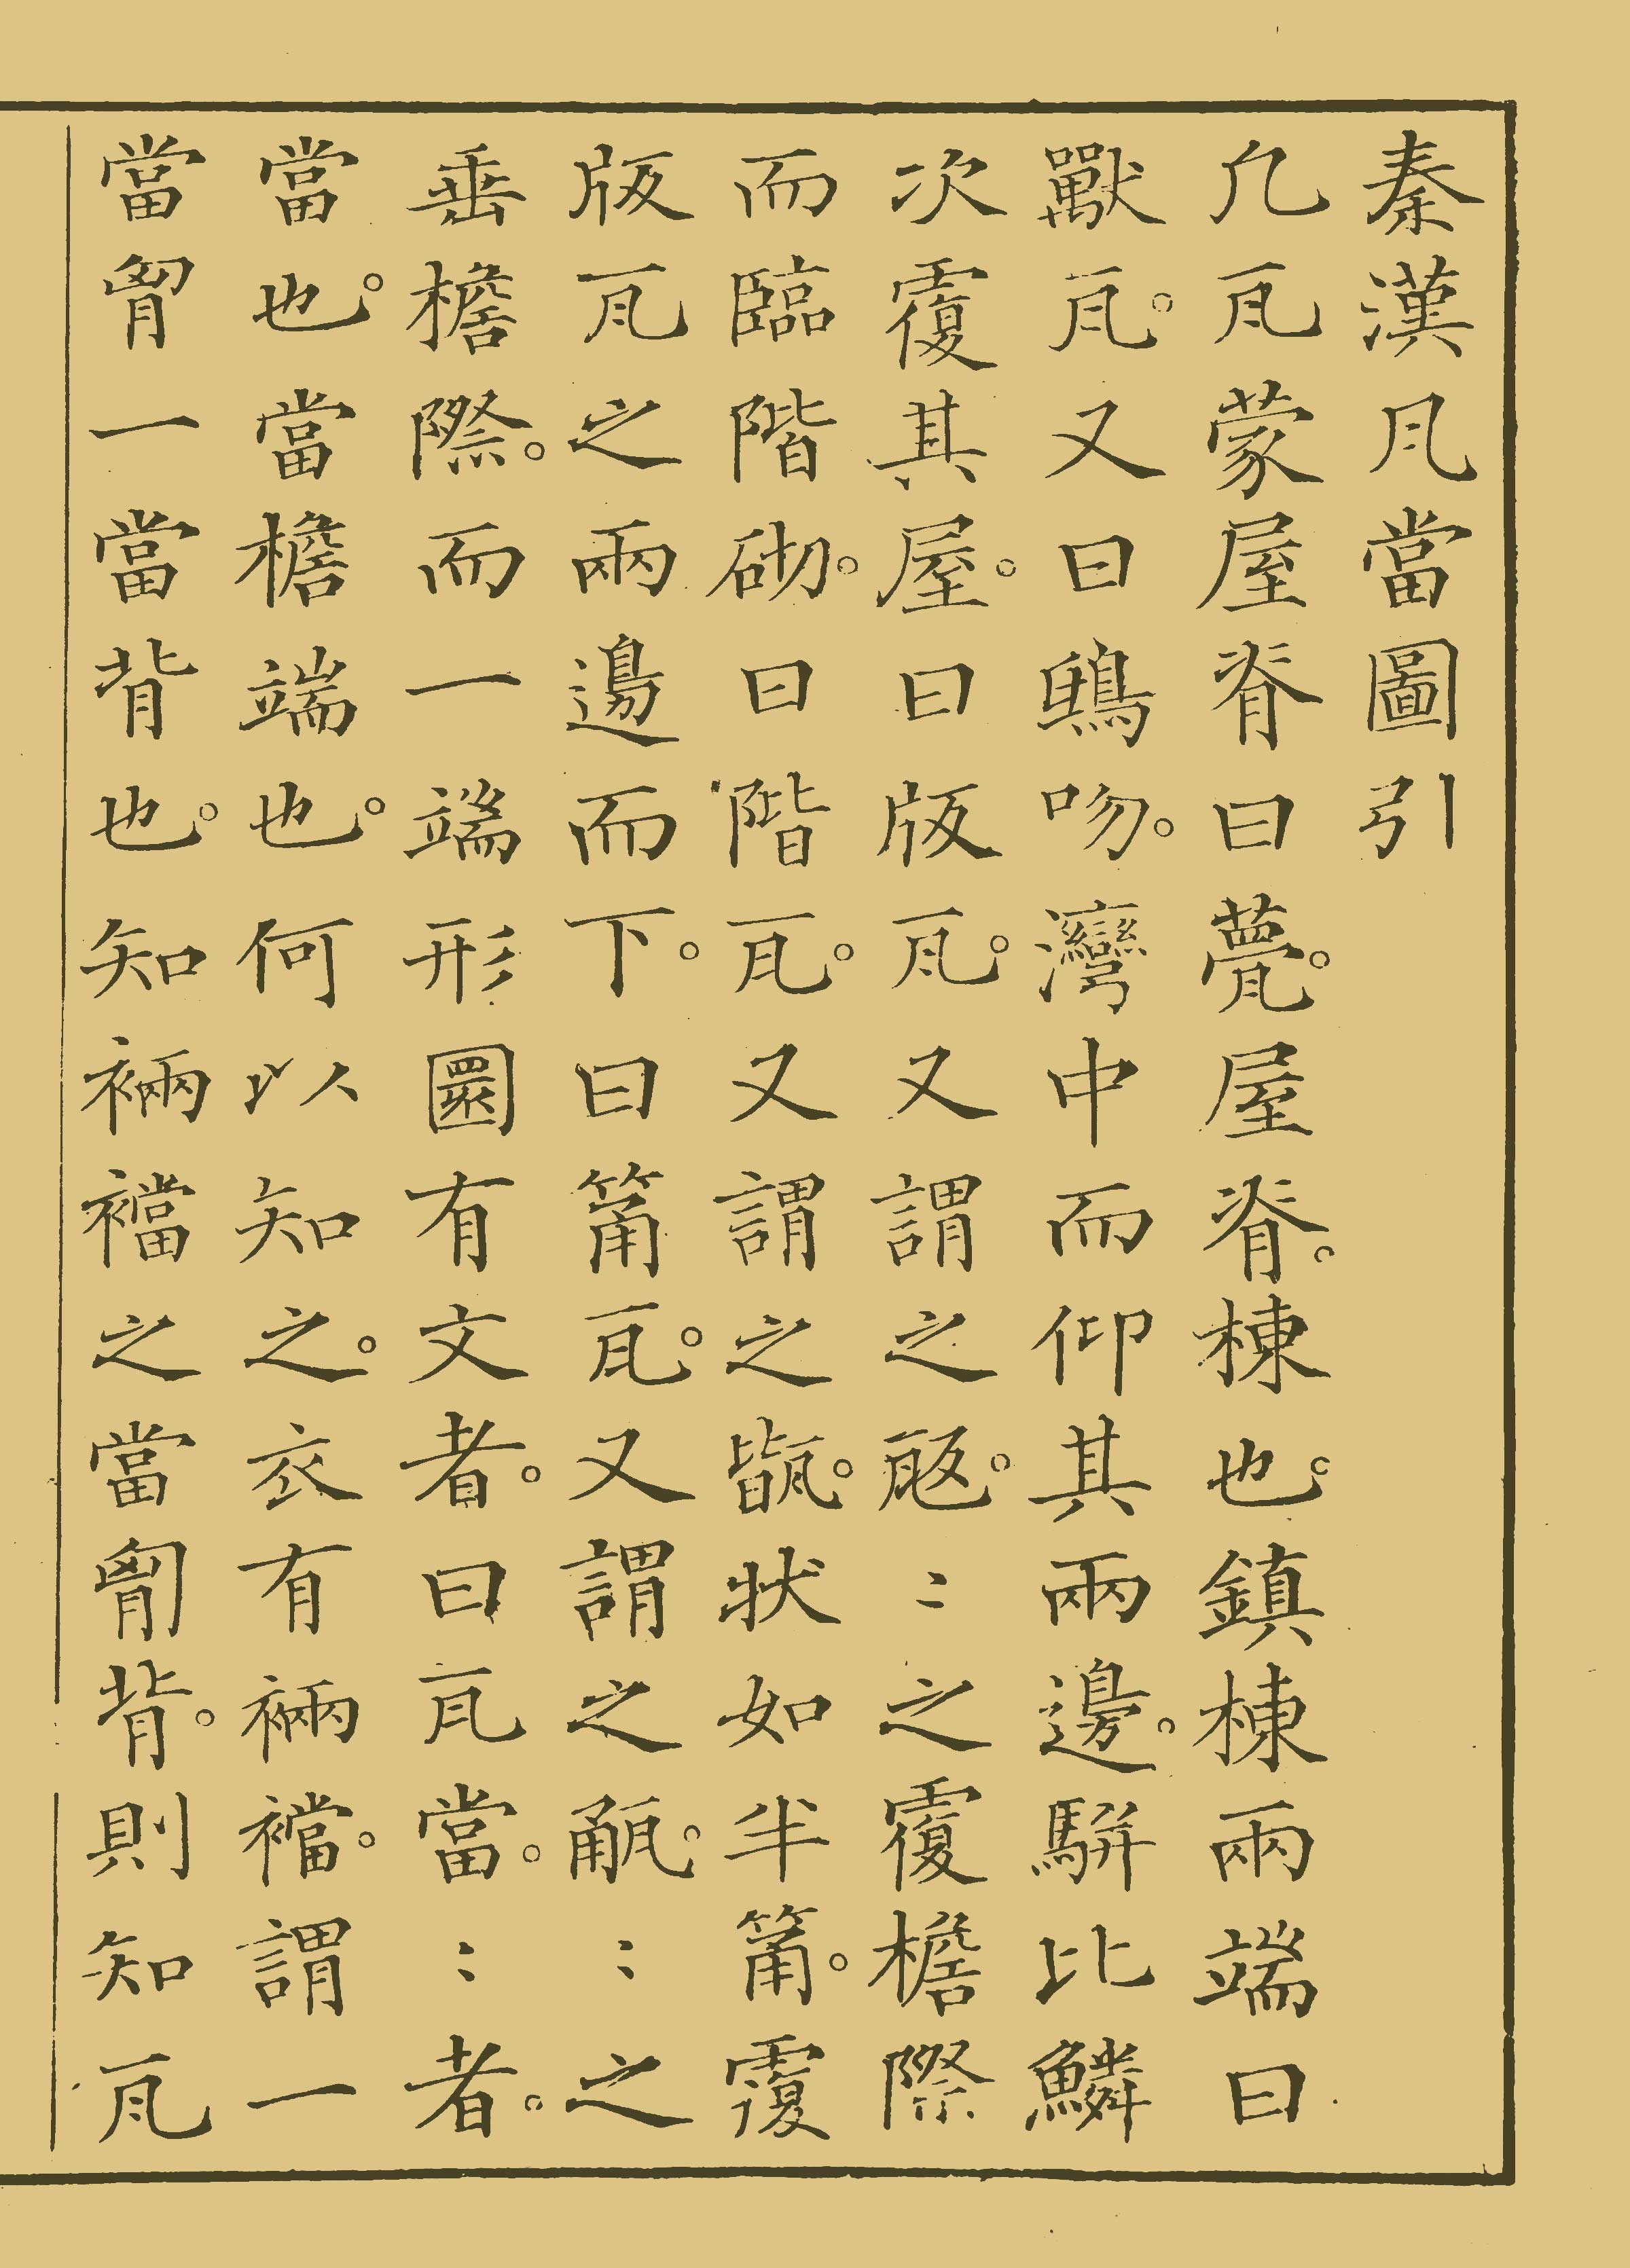 秦漢瓦當圖引
凡瓦蒙屋脊曰甍。屋脊。棟也。鎮棟兩端曰
獸瓦。又曰鴟吻。灣中而仰其兩邊。駢比鱗
次覆其屋。曰版瓦。又謂之瓪。〻之覆檐際
而臨階砌。曰階瓦。又謂之㼽。狀如半筩。覆
版瓦之兩邊而下。曰筩瓦。又謂之㼧。〻之
垂檐際。而一端形圜有文者。曰瓦當。〻者。
當也。當檐端也。何以知之。衣有裲襠。謂一
當胷一當背也。知裲襠之當胷背。則知瓦